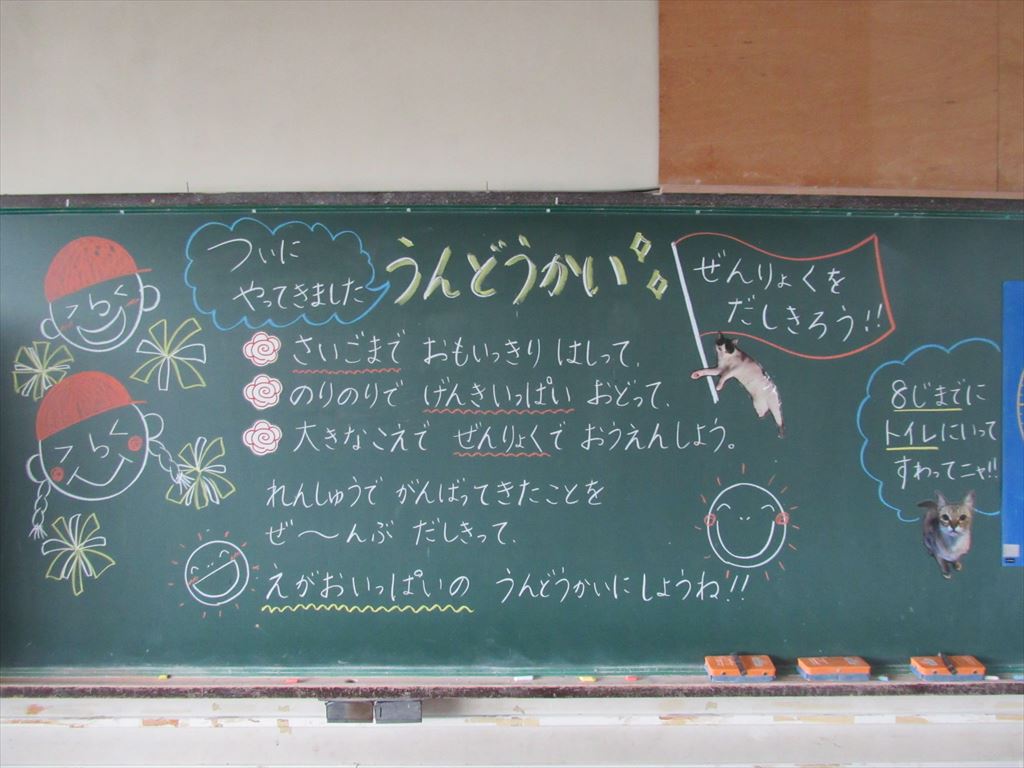 ついに
やってきました
うんどうかい
ぜんりょくを
だしきろう!!
さいごまで おもいっきり はしって、
のりのりで げんきいっぱい おどって、
大きなこえで ぜんりょくで おうえんしよう。
れんしゅうで がんばってきたことを
ぜ〜んぶ だしきって、
えがおいっぱいの うんどうかいにしようね!!
8じまでに
トイレにいって
すわってニャ!!